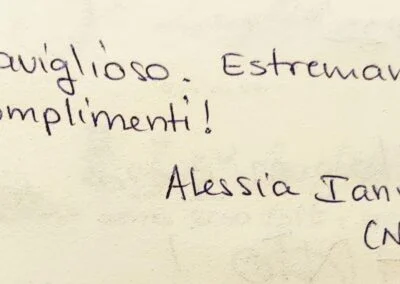 aviglioso. Estreman
omplimenti!
Alessia Iann
(N